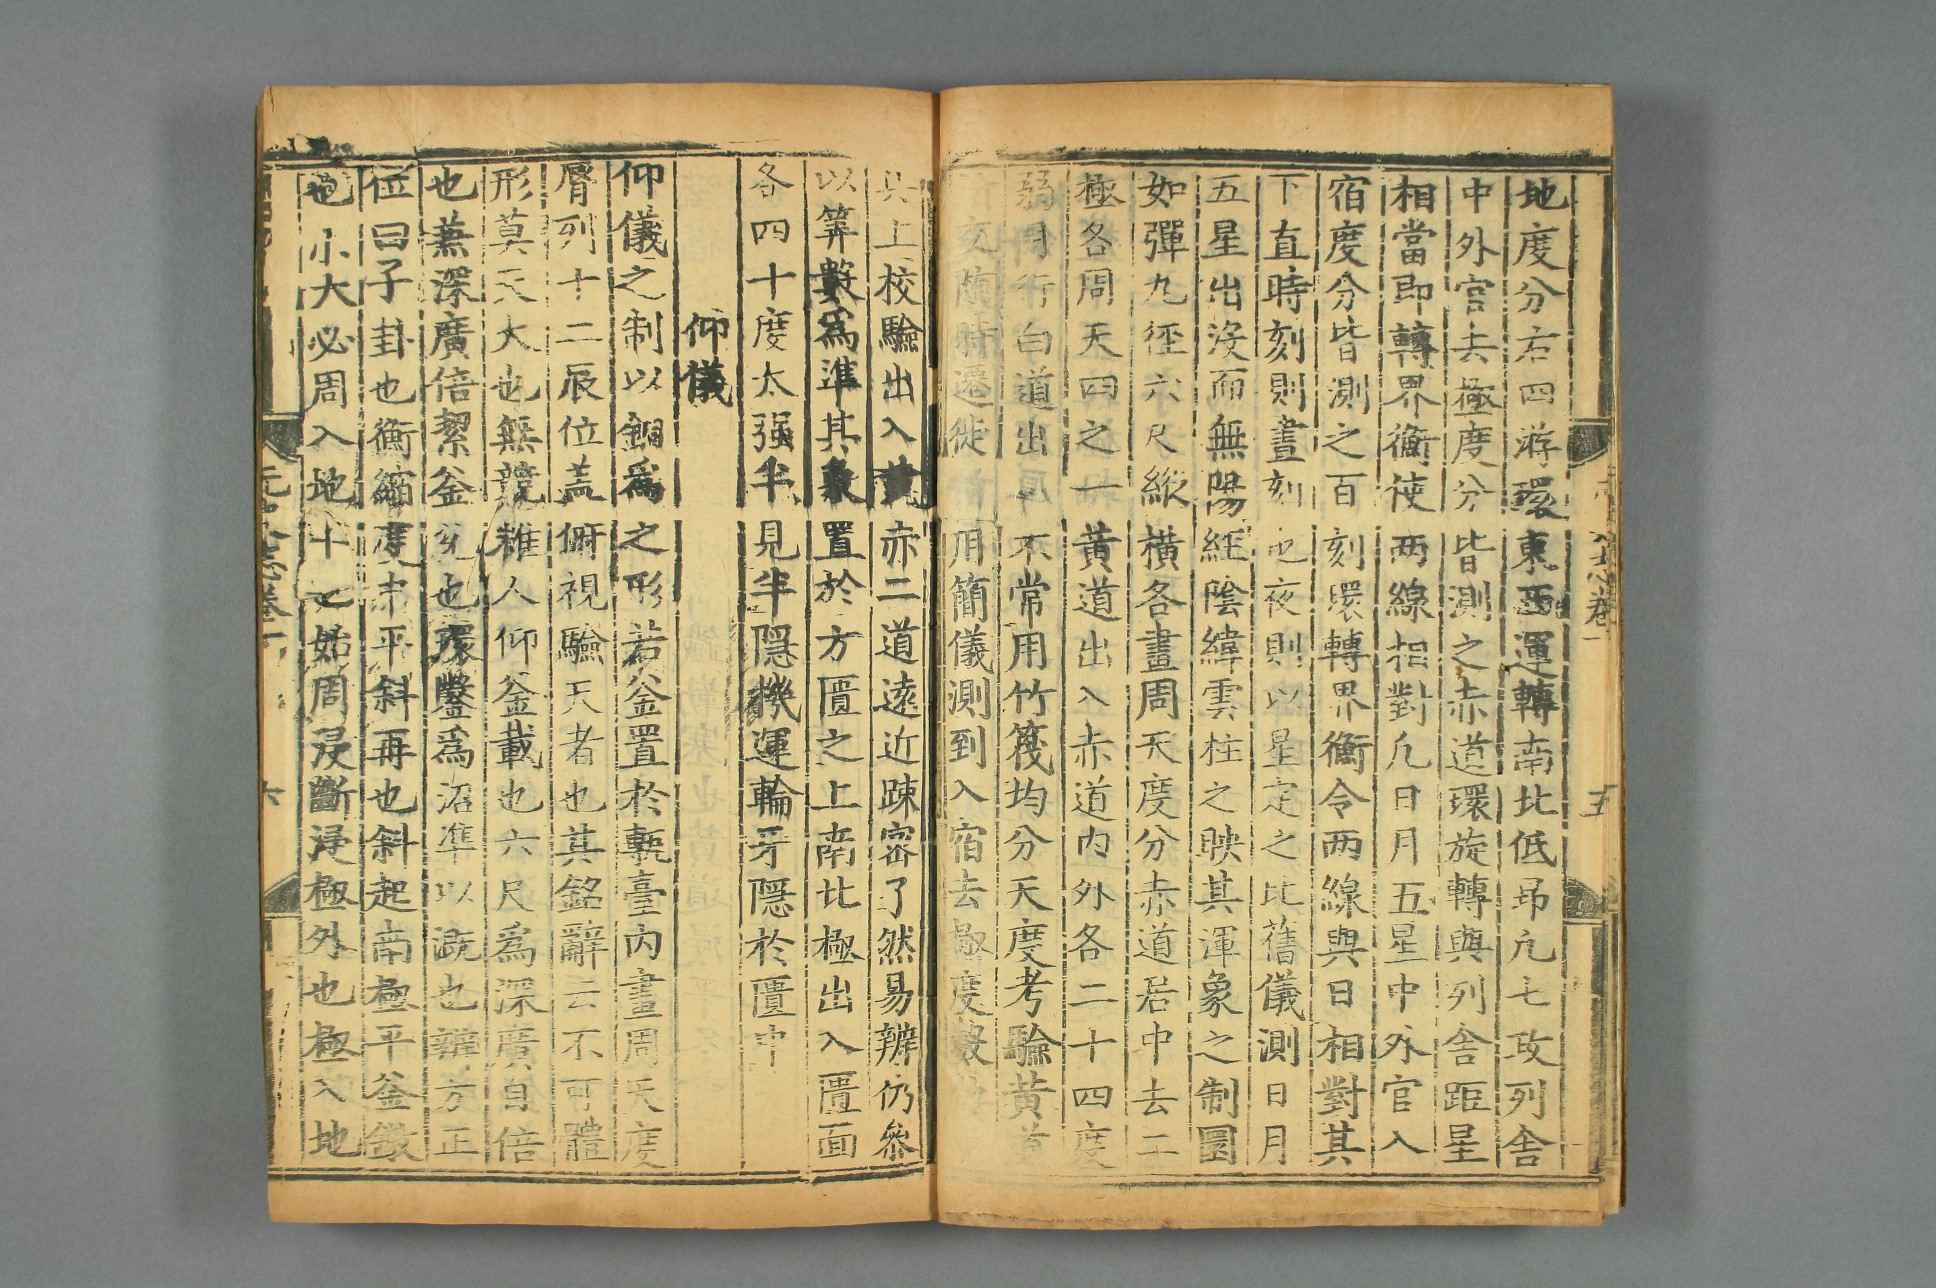 地度分右四游環東西運轉南北低昻凢七政列舎
中外官去極度分皆測之赤道環旋轉與列舎距星
相當即轉界衡使两線相對凢日月五星中外官入
宿度分皆測之百刻環轉界衡令两線與日相對其
下直時刻則晝刻也夜則以星定之比舊儀測日月
五星出沒而無陽經陰緯雲柱之映其渾象之制圎
如彈丸徑六尺縱橫各畫周天度分赤道居中去二
極各周天四之一黄道出入赤道内外各二十四度
弱月行白道出入不常用竹篾均分天度考驗黄道
交隨時遷徙用簡儀測到入宿去極度數
其上校驗出入黄赤二道逺近疎宻了然易辨仍叅
以筭數爲準其象置於方匱之上南北極出入匱面
各四十度太强半見半隠機運輪牙隠於匱中
仰儀
仰儀之制以銅爲之形若釡置於甎臺内畫周天度
脣列十二辰位盖俯視驗天者也其銘辭云不可體
形莫天大也無競維人仰釡載也六尺爲深廣自倍
也兼深廣倍絜釡兊也環鑿爲沼準以漑也辨方正
位曰子卦也衡縮度中平斜再也斜起南極平釡鐓
也小大必周入地畫也始周浸斷浸極外也極入地
元史志卷一
五
六